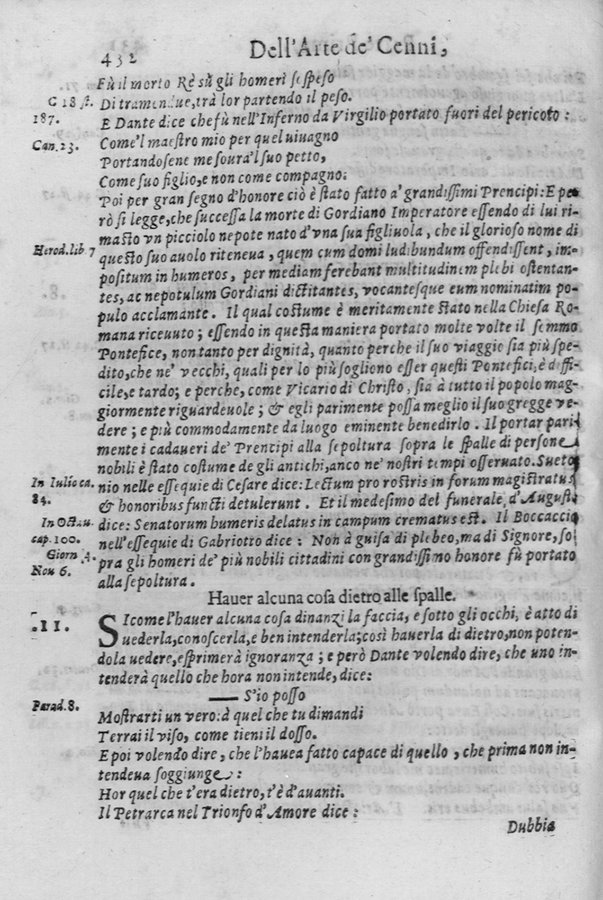 432 Dell'Arte de' Cenni,
Fù il morto Rè sù gli homeri sospeso
C 18 st. Di tramendue, trà lor partendo il peso.
187. E Dante dice che fù nell'Inferno da Virgilio portato fuori del pericolo:
Can. 23. Come'l maestro mio per quel viuagno
Portandosene me soura'l suo petto,
Come suo figlio, e non come compagno.
Poi per gran segno d'honore ciò è stato fatto a' grandissimi Prencipi: E pe
rò si legge, che successa la morte di Gordiano Imperatore essendo di lui ri-
masto vn picciolo nepote nato d'vna sua figliuola, che il glorioso nome di
Herod. lib. 7 questo suo auolo riteneua, quem cum domi ludibundum offendissent, im-
positum in humeros, per mediam ferebant multitudinem plebi ostentan-
tes, ac nepotulum Gordiani dictitantes, vocantesque eum nominatim po-
pulo acclamante. Il qual costume è meritamente stato nella Chiesa Ro-
mana riceuuto; essendo in questa maniera portato molte volte il sommo
Pontefice, non tanto per dignità, quanto perche il suo viaggio sia più spe-
dito, che ne' vecchi, quali per lo più sogliono esser questi Pontefici, è diffi-
cile, e tardo; e perche, come Vicario di Christo, sia à tutto il popolo mag-
giormente riguardeuole; & egli parimente possa meglio il suo gregge ve-
dere; e più commodamente da luogo eminente benedirlo. Il portar pari-
mente i cadaueri de' Prencipi alla sepoltura sopra le spalle di persone
nobili è stato costume de gli antichi, anco ne' nostri tempi osseruato. Sueto
In Iulio ca. nio nelle essequie di Cesare dice: Lectum pro rostris in forum magistratus
84. & honoribus functi detulerunt. Et il medesimo del funerale d'Augusto
In Octau. dice: Senatorum humeris delatus in campum crematus est. Il Boccaccio
cap. 100. nell'essequie di Gabriotto dice: Non à guisa di plebeo, ma di Signore, so
Giorn 4. pra gli homeri de' più nobili cittadini con grandissimo honore fù portato
Nou 6. alla sepoltura.
Hauer alcuna cosa dietro alle spalle.
.II. SIcome l'hauer alcuna cosa dinanzi la faccia, e sotto gli occhi, è atto di
uederla, conoscerla, e ben intenderla; così hauerla di dietro, non poten-
dola uedere, esprimerà ignoranza; e però Dante volendo dire, che uno in-
tenderà quello che hora non intende, dice:
—— S'io posso
Parad. 8. Mostrarti un vero: à quel che tu dimandi
Terrai il viso, come tieni il dosso.
E poi volendo dire, che l'hauea fatto capace di quello, che prima non in-
tendeua soggiunge:
Hor quel che t'era dietro, t'è d'auanti.
Il Petrarca nel Trionfo d'Amore dice:
Dubbia